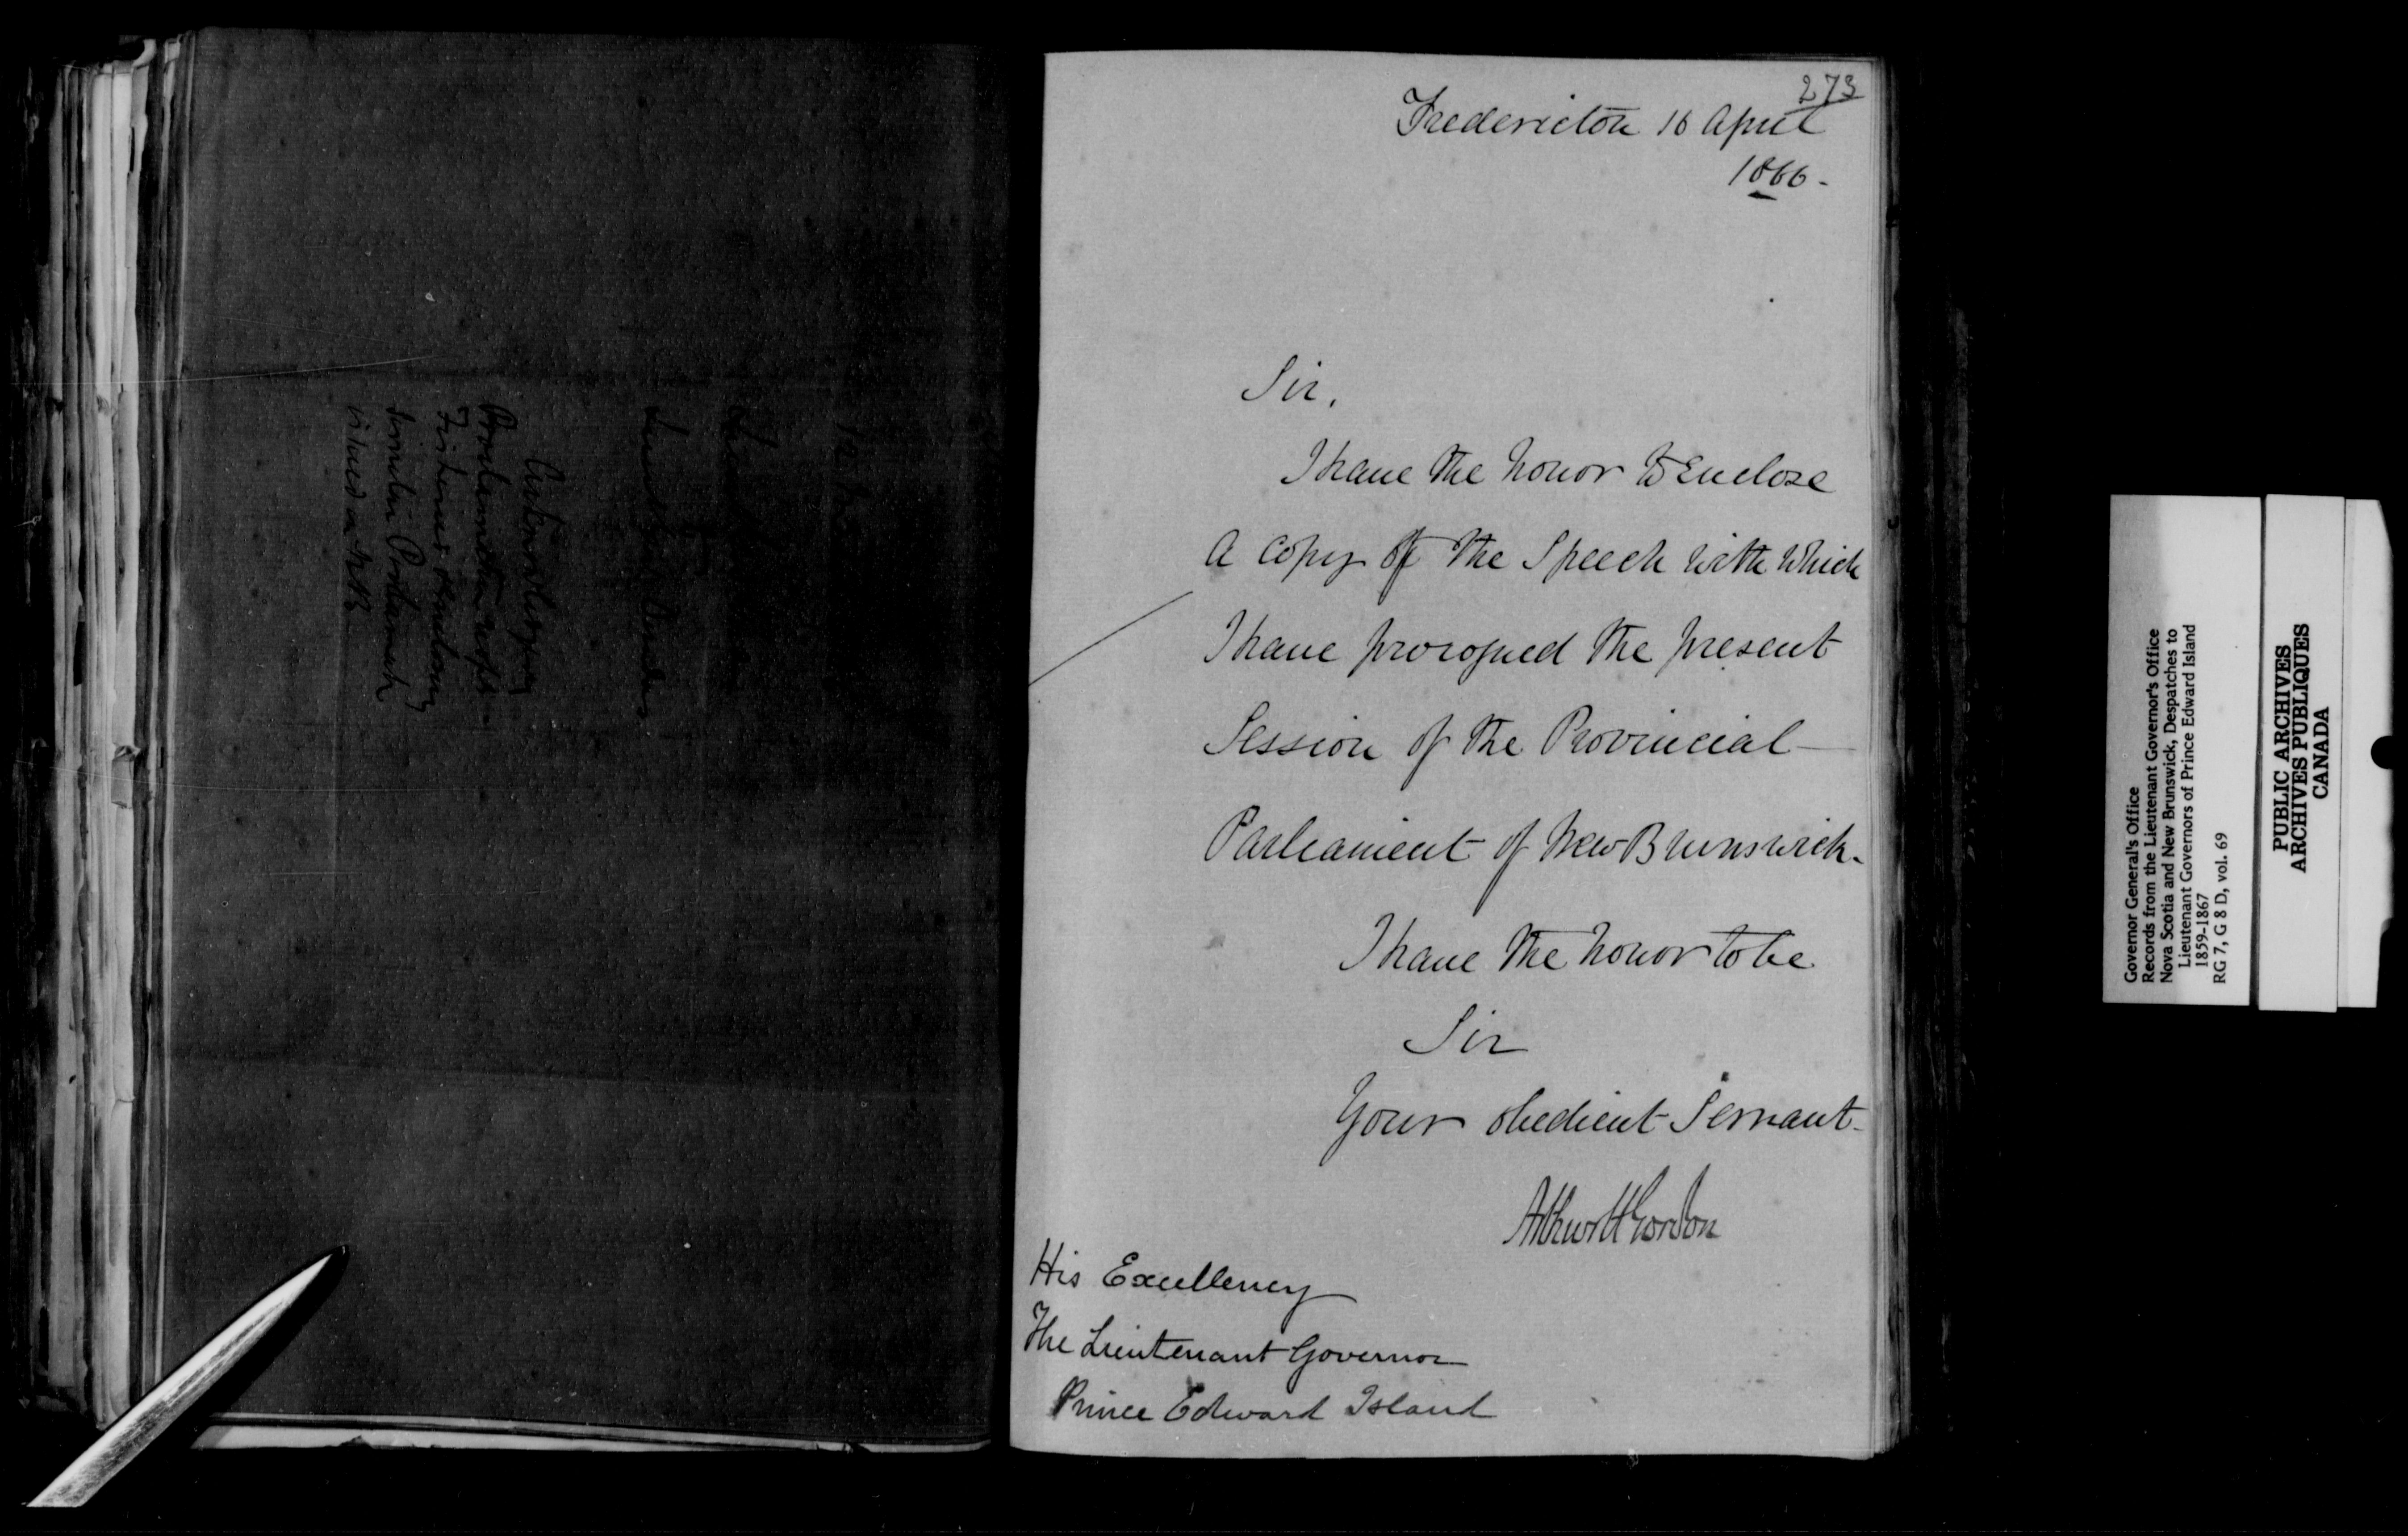 Acknowledging
Proclamation respt
Fisheries &
similar Proclamn
issued in N B
273
Fredericton 16 April
1866.
Sir,
I have the honor to Enclose
a copy of the Speech with which
I have prorogued the present
Session of the Provincial
Parliament of New Brunswick.
I have the honor to be
Sir
Your obedient Servant.
Arthur H Gordon
His Excellency
The Lieutenant Governor
Prince Edward Island
Governor General's Office
Records from the Lieutenant Governor's Office
Nova Scotia and New Brunswick, Despatches to
Lieutenant Governors of Prince Edward Island
1859-1867
RG 7, G 8 D, vol. 69
PUBLIC ARCHIVES
ARCHIVES PUBLIQUES
CANADA